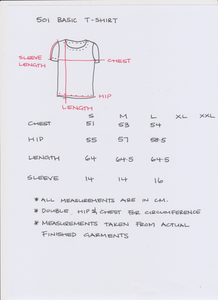 501 BASIC T-SHIRT
SLEEVE
LENGTH
CHEST
HIP
LENGTH
S M L XL XXL
CHEST 51 53 54
HIP 55 57 58.5
LENGTH 64 64.5 64.5
SLEEVE 14 14 16
* ALL MEASUREMENTS ARE IN CM.
* DOUBLE HIP & CHEST FOR CIRCUMFERENCE
* MEASUREMENTS TAKEN FROM ACTUAL
FINISHED GARMENTS